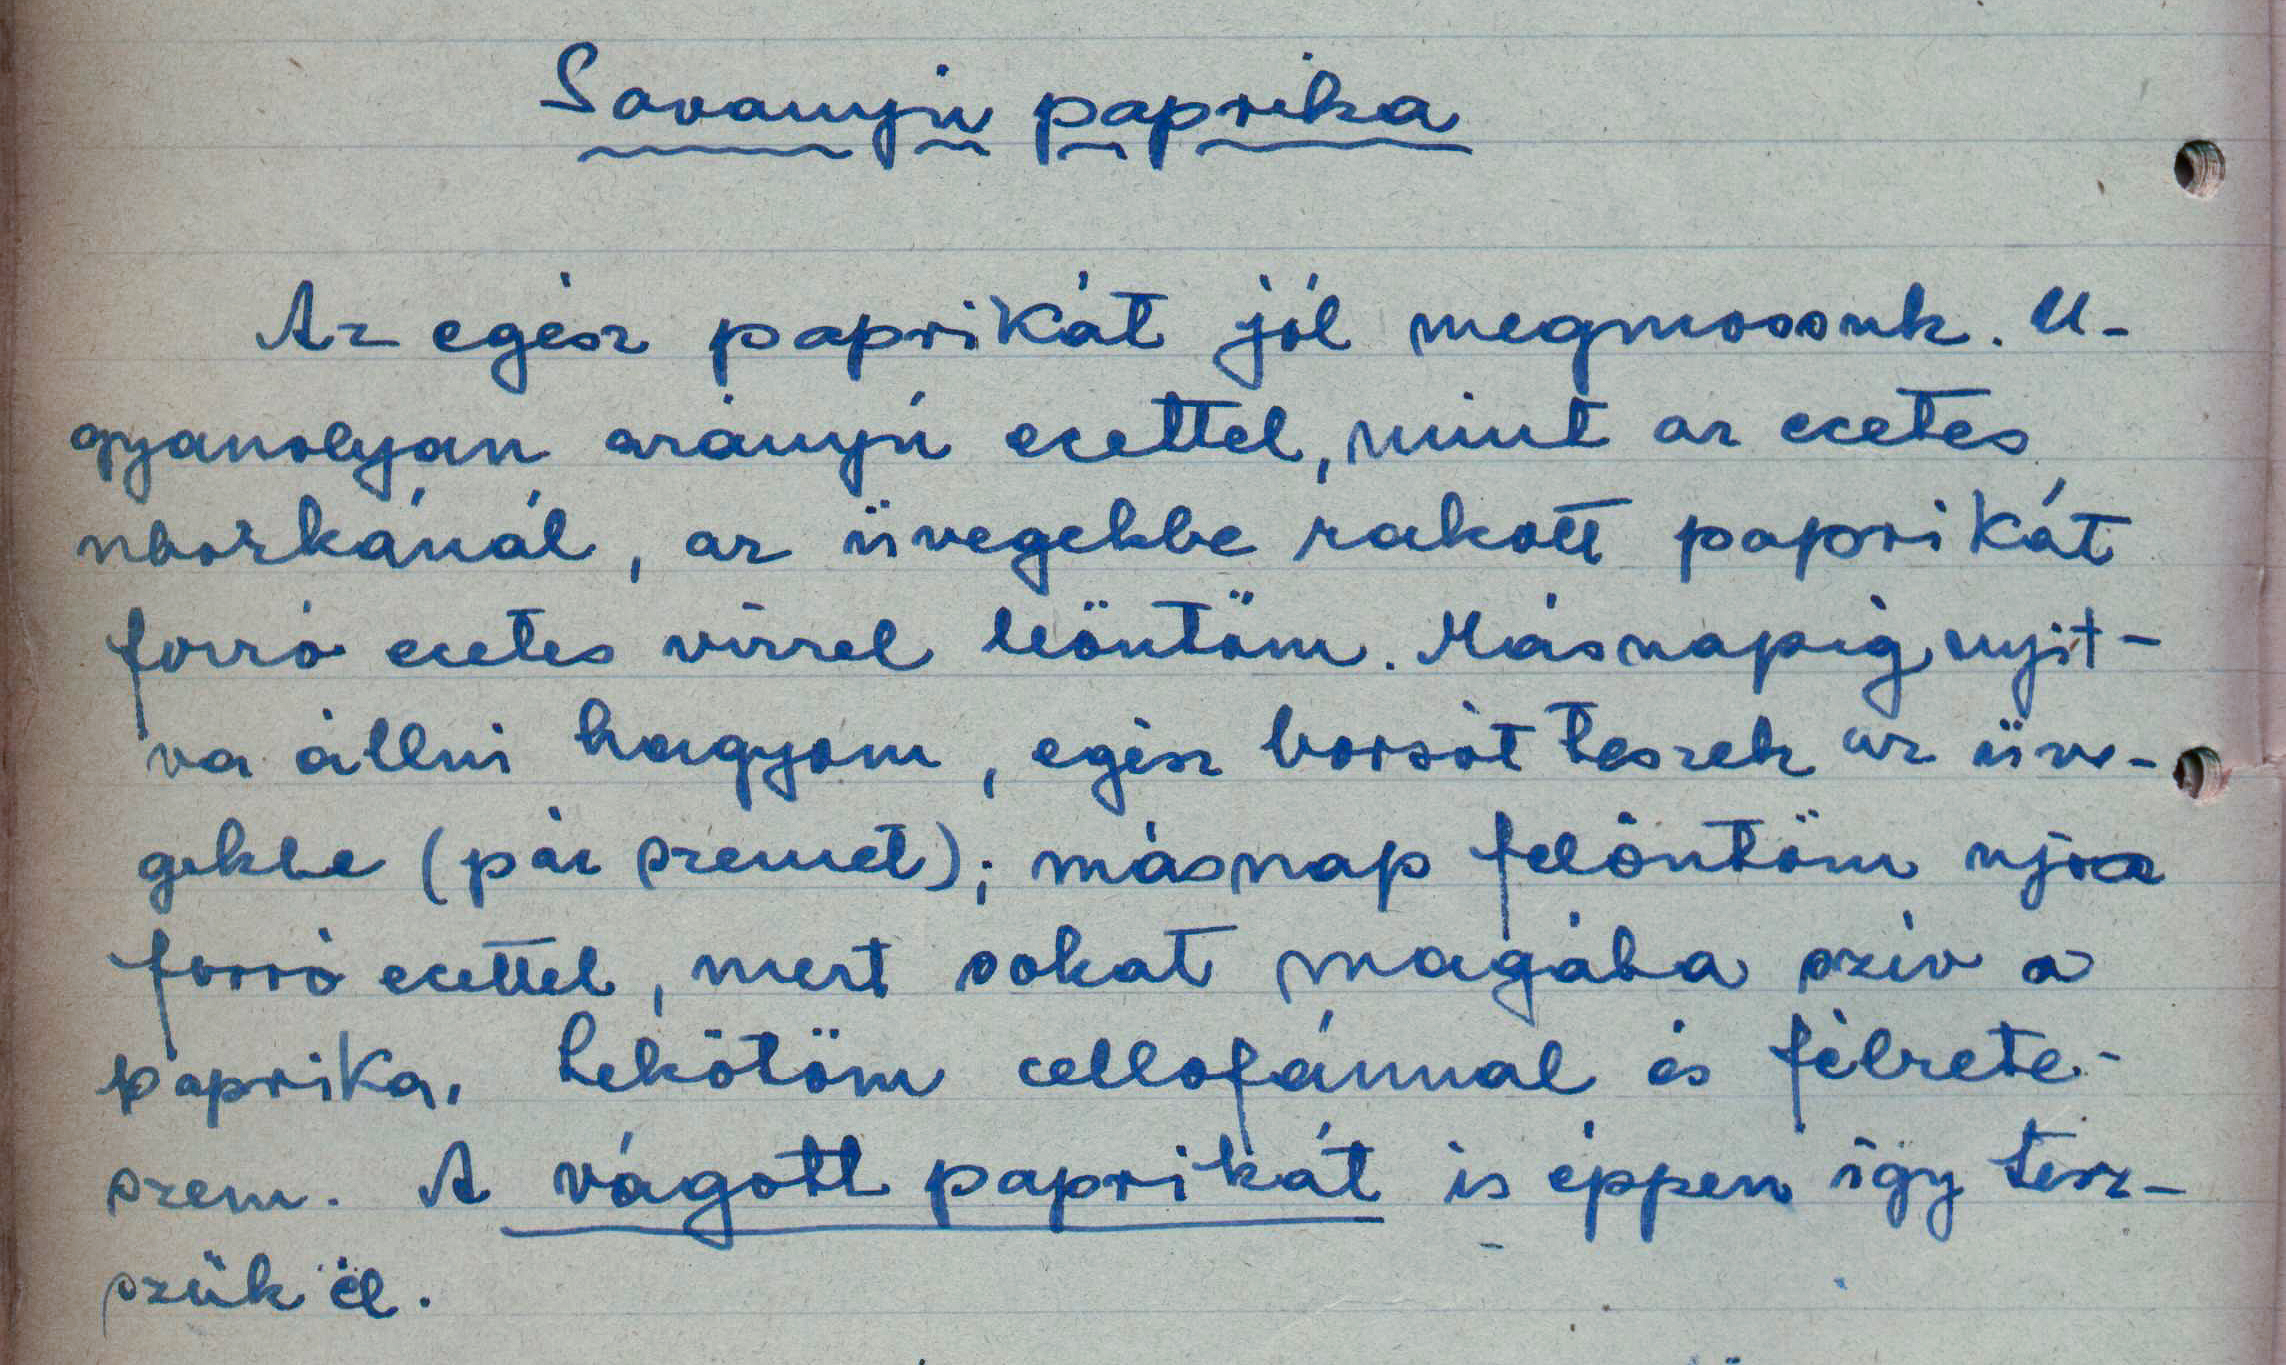 Savanyú paprika
Az egész paprikát jól megmossuk. U-
gyanolyan arányú ecettel, mint az ecetes
uborkánál, az üvegekbe rakott paprikát
forró ecetes vízzel leöntöm. Másnapig nyit-
va állni hagyom, egész borsót teszek az üve-
gekbe (pár szemet); másnap felöntöm ujra
forró ecettel, mert sokat magába szív a
paprika. Lekötöm cellofánnal és félrete-
szem. A vágott paprikát is éppen így tesz-
szük el.